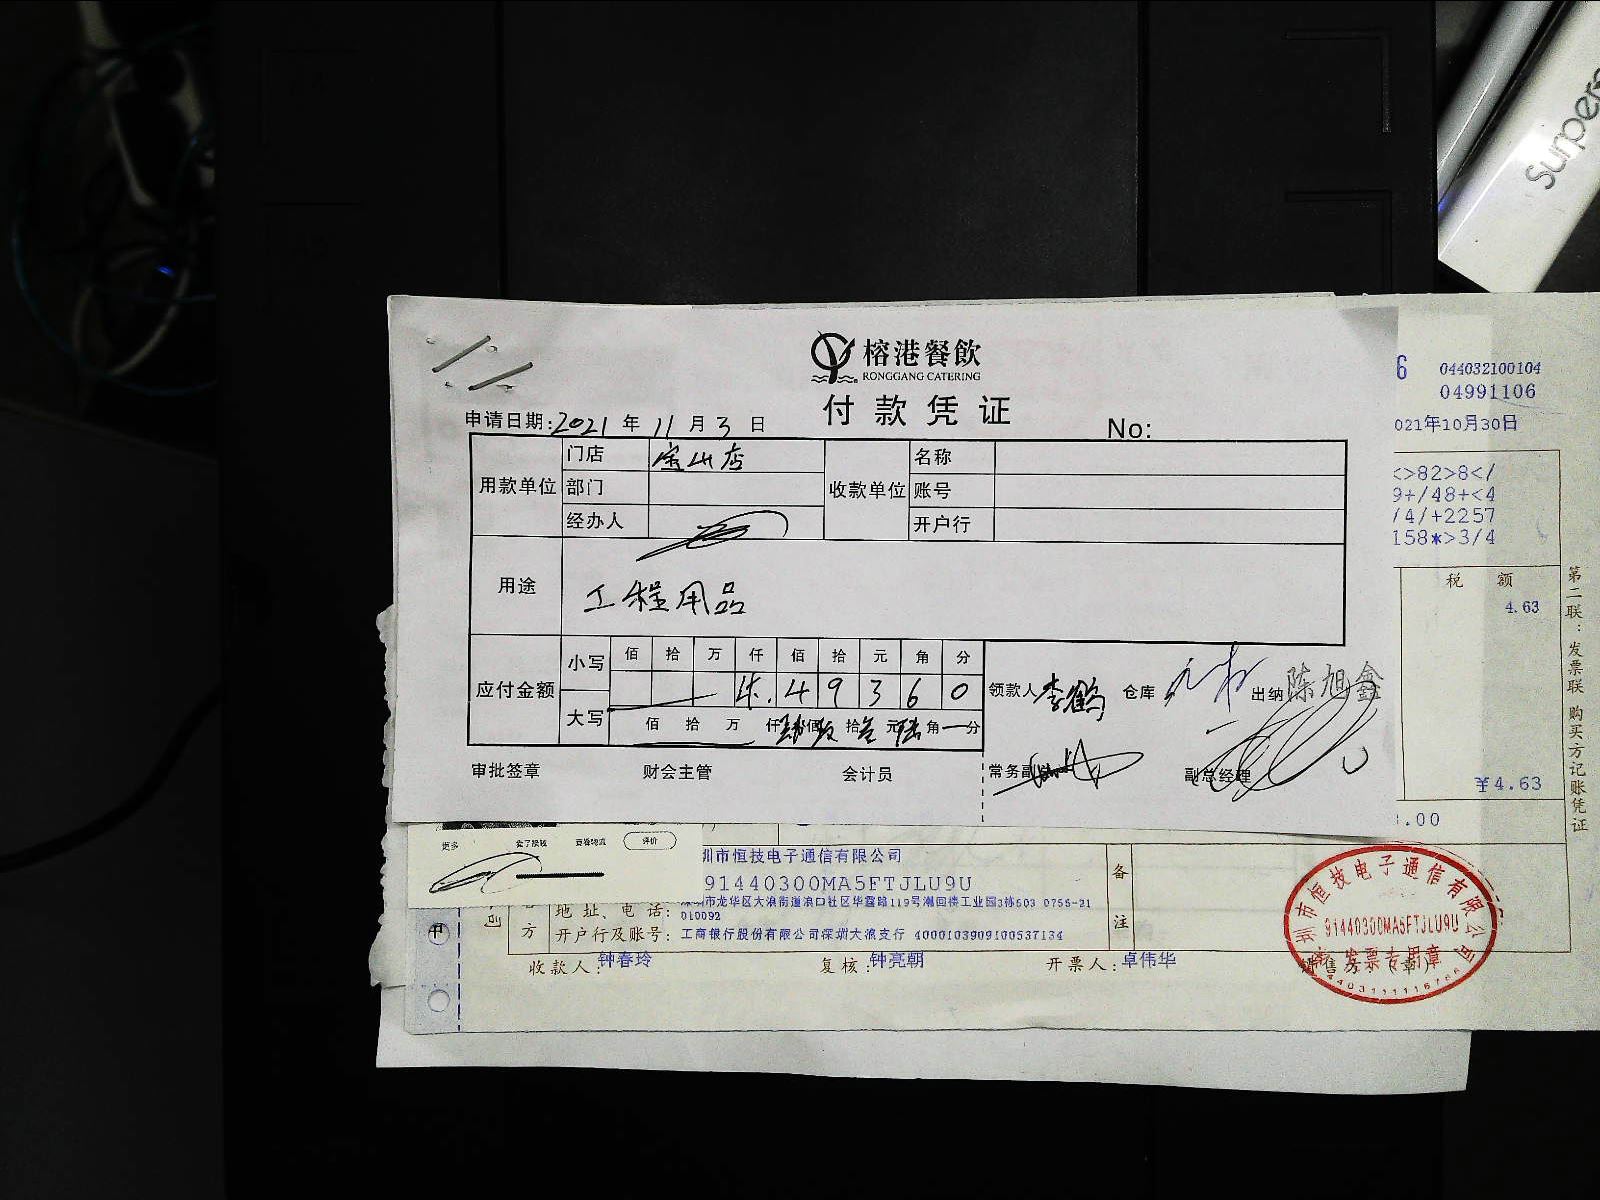 Surpers
榕港餐飲
RONGGANG CATERING
付款凭证
申请日期: 2021 年 11 月 3 日
No:
用款单位 门店 宝山店 收款单位 名称
部门 账号
经办人 开户行
用途 工程用品
应付金额 小写 佰 拾 万 仟 佰 拾 元 角 分
4 9 3 6 0
大写 佰 拾 万 仟 佰 拾 元 角 分
领款人 李鹤 仓库 出纳 陈旭鑫
审批签章 财会主管 会计员 常务副 副总经理
6 044032100104
04991106
021年10月30日
<>82>8</
9+/48+<4
/4/+2257
158*>3/4
税 额
4.63
¥4.63
.00
第二联:发票联 购买方记账凭证
更多 卖了换钱 查看物流 评价
圳市恒技电子通信有限公司
91440300MA5FTJLU9U
方 地址、电话: 圳市龙华区大浪街道浪口社区华霆路119号潮回楼工业园3栋503 0755-21
010092
开户行及账号: 工商银行股份有限公司深圳大浪支行 4000103909100537134
备注
收款人: 钟春玲 复核: 钟亮朝 开票人: 卓伟华 销售方:(章)
圳市恒技电子通信有限公司
91440300MA5FTJLU9U
发票专用章